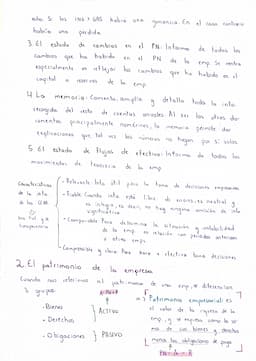 año. Si los ing > gas habría una ganancia. En el caso contrario
habría una pérdida
3. El estado de cambios en el PN: Informa de todos los
cambios que ha habido en el PN de la emp. Se centra
especialmente en reflejar los cambios que ha habido en el
capital o reservas de la emp
4. La memoria: Comenta, amplía y detalla toda la info
recogida del resto de cuentas anuales. Al ser los otros do-
cumentos principalmente numéricos, la memoria permite dar
explicaciones que tal vez los números no hagan por sí solos
5. El estado de flujos de efectivo: Informa de todos los
movimientos de tesorería de la emp
Características
de la info
de las CCAA
- Relevante: Info útil para la toma de decisiones empresariales
- Fiable: Cuando info esté libre de errores, es neutral y
es íntegra, es decir, no hay ninguna omisión de info
significativa
- Comparable: Para determinar la situación y rentabilidad
de la emp. en relación con periodos anteriores
u otras emps.
- Comprensible y clara: Para tomar y efectiva toma decisiones
2. El patrimonio de la empresa
Cuando nos referimos al patrimonio de una emp, se diferencian
3 grupos
- Bienes
- Derechos
} ACTIVO
- Obligaciones } PASIVO
=> Patrimonio empresarial: es
el valor de la riqueza de la
emp, y se expresa como la su
ma de sus bienes y derechos
menos las obligaciones de pago